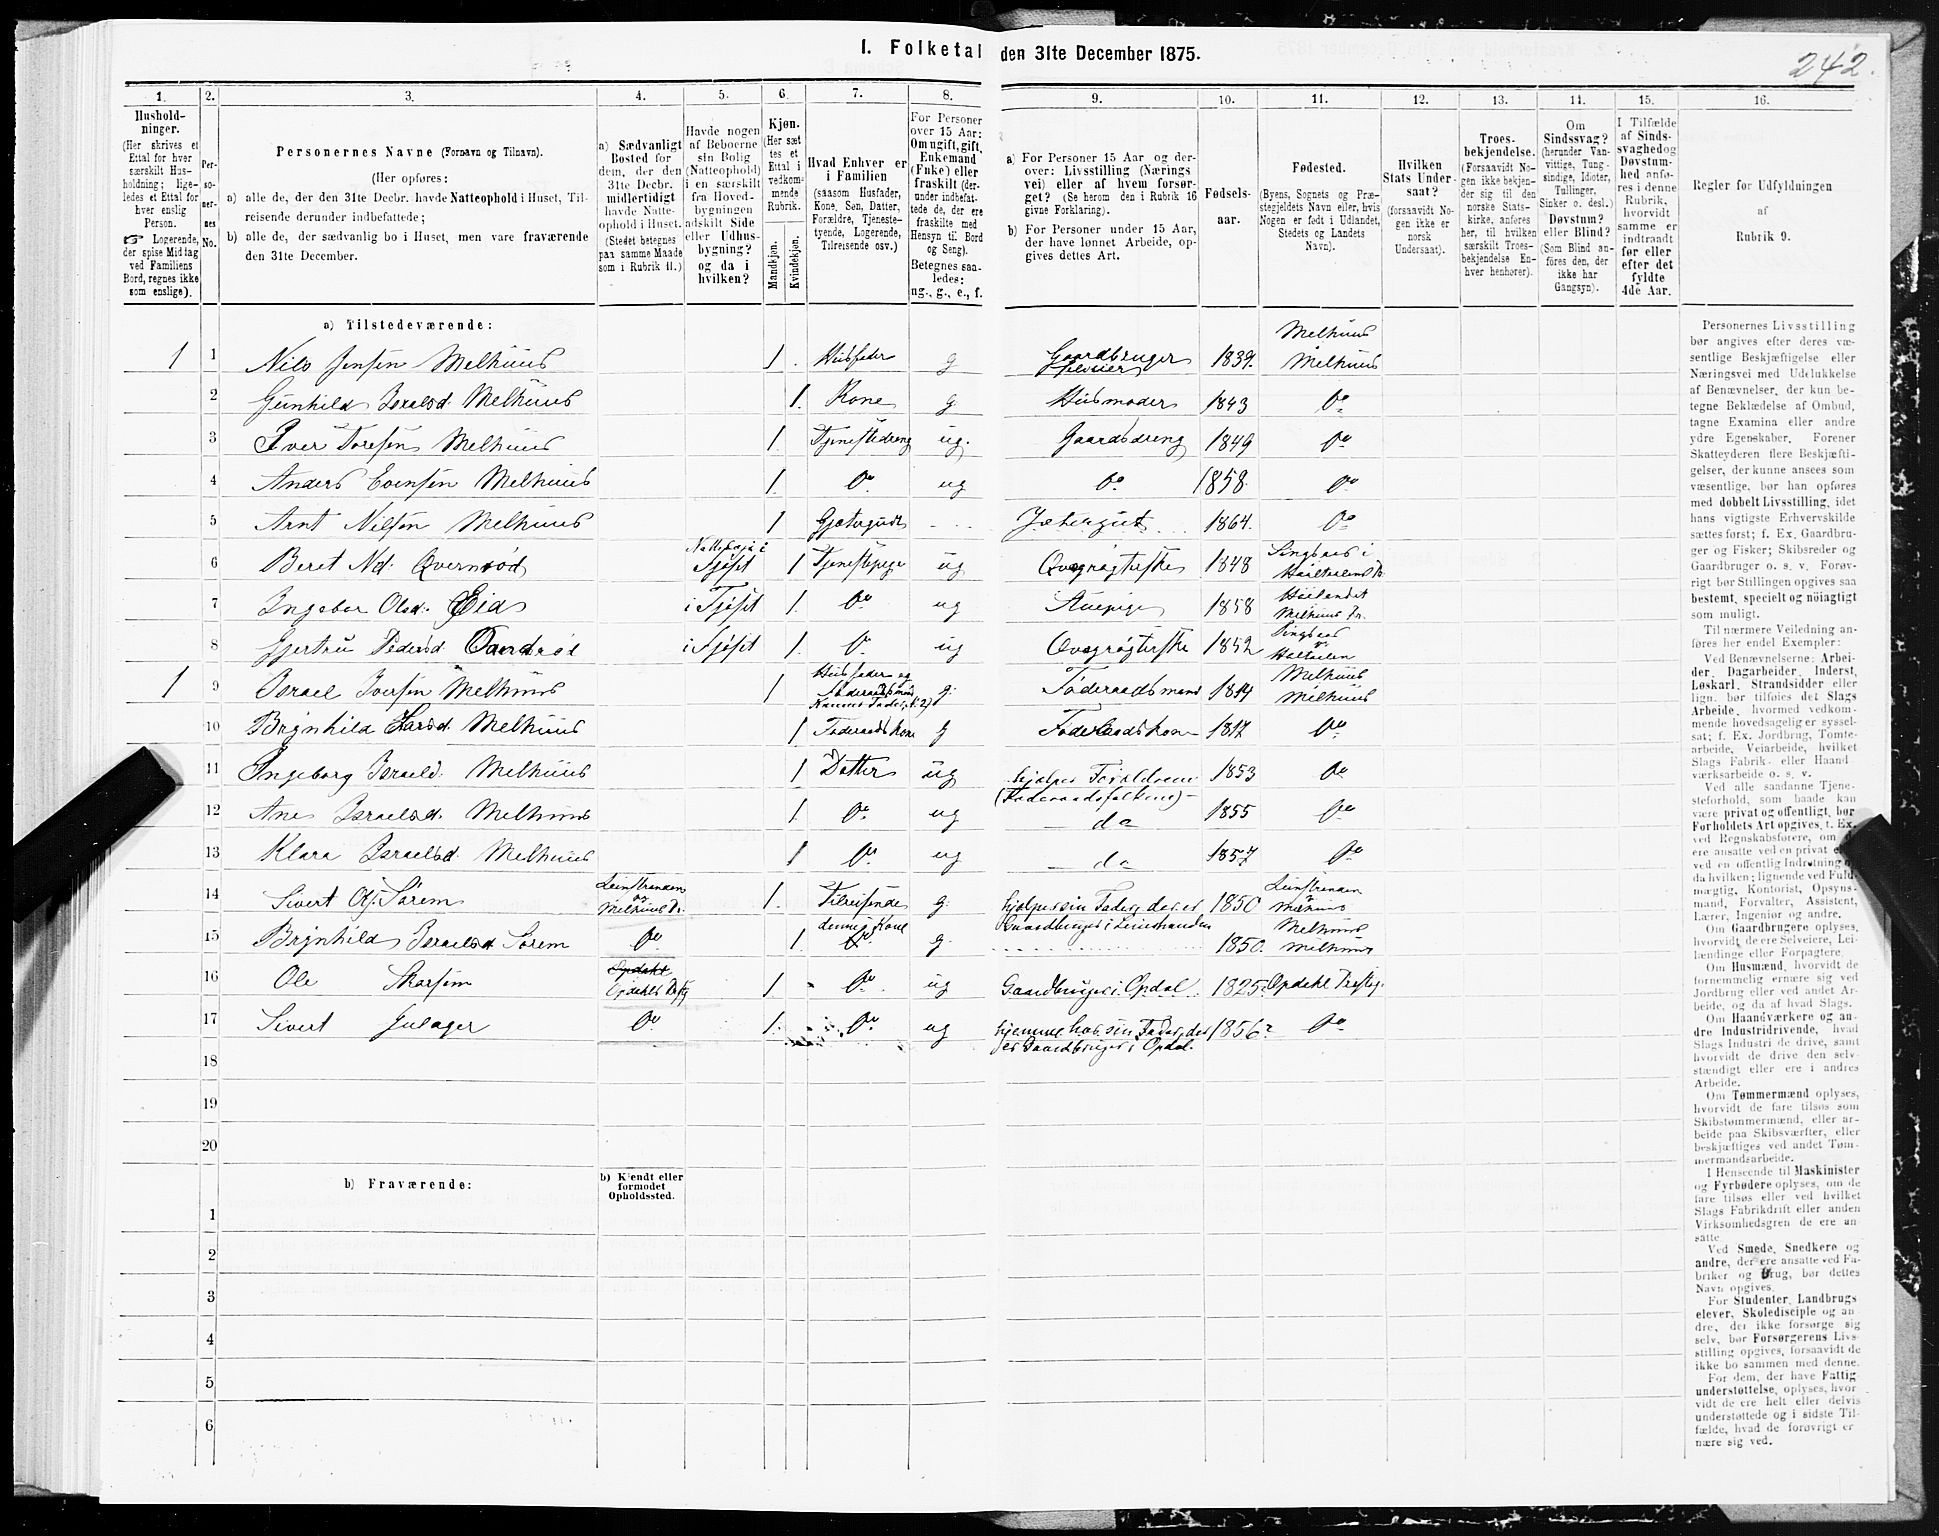 I. Folketal den 31te December 1875.
242.
1. 2. 3. 4. 5. 6. 7. 8. 9. 10. 11. 12. 13. 14. 15. 16.
Hushold-
ninger.
(Her skrives et
Ettal for hver
særskilt Hus-
holdning; lige-
ledes et Ettal for
hver enslig
Person.
☞ Logerende,
der spise Middag
ved Familiens
Bord, regnes ikke
som enslige).
Per-
so-
ner-
nes
No.
Personernes Navne (Fornavn og Tilnavn).
(Her opføres:
a) alle de, der den 31te Decbr. havde Natteophold i Huset, Til-
reisende derunder indbefattede;
b) alle de, der sædvanlig bo i Huset, men vare fraværende
den 31te December.
a) Sædvanligt
Bosted for
dem, der den
31te Decbr.
midlertidigt
havde Natte-
ophold i Huset.
(Stedet betegnes
paa samme Maade
som i Rubrik 11.)
Havde nogen
af Beboerne
sin Bolig
(Natteophold)
i en særskilt
fra Hoved-
bygningen
adskilt Side
eller Udhus-
bygning?
og da i
hvilken?
Kjøn.
(Her sæt
tes et
Ettal i
vedkom-
mende
Rubrik.
Mandkjøn.
Kvindekjøn.
Hvad Enhver er
i Familien
(saasom Husfader,
Kone, Søn, Datter,
Forældre, Tjeneste-
tyende, Logerende,
Tilreisende osv.)
For Personer
over 15 Aar:
Om ugift, gift,
Enkemand
(Enke) eller
fraskilt (der-
under indbefat-
tede de, der ere
fraskilte med
Hensyn til Bord
og Seng).
Betegnes saa-
ledes:
ug., g., e., f.
a) For Personer 15 Aar og der-
over: Livsstilling (Nærings
vei) eller af hvem forsør-
get? (Se herom den i Rubrik 16
givne Forklaring).
b) For Personer under 15 Aar,
der have lønnet Arbeide, op-
gives dettes Art.
Fødsels-
aar.
Fødested.
(Byens, Sognets og Præ-
stegjeldets Navn eller, hvis
Nogen er født i Udlandet,
Stedets og Landets
Navn).
Hvilken
Stats Under-
saat?
(forsaavidt No-
gen ikke er
norsk
Undersaat).
Troes-
bekjendelse.
(Forsaavidt No-
gen ikke bekjen-
der sig til den
norske Stats-
kirke, anføres
her, til hvilken
særskilt Troes-
bekjendelse En-
hver henhører).
Om
Sindssvag?
(herunder Van-
vittige, Tung-
sindige, Idioter,
Tullinger,
Sinker o. desl.)
Døvstum?
eller Blind?
(Som Blind an-
føres den, der
ikke har
Gangsyn).
I Tilfælde
af Sinds-
svaghed og
Døvstum-
hed anfø-
res i denne
Rubrik,
hvorvidt
samme er
indtraadt
før eller
efter det
fyldte
4de Aar.
Regler for Udfyldningen
af
Rubrik 9.
a) Tilstedeværende:
1 1 Nils Jensen Melhuus 1 Husfader g Gaardbruger Selveier 1839. Melhuus Melhuus
2 Gunhild Israelsd. Melhuus 1. Kone g Husmoder 1843 Do
3 Iver Toresen Melhuus 1 Tjenestedreng ug. Gaardsdreng 1849 Do
4 Anders Evensen Melhuus 1. Do ug Do 1858. Do
5 Arnt Nilsen Melhuus 1 Gjætergut Jætergut 1864. Do
6 Beret Nd. Qvernrød Natteophold i Fjøset 1 Tjenestepige ug Qvægrøgterske 1848 Singsaas i Haaltaalens Pr.
7 Ingebor Olsd. Eid i Fjøset 1. Do ug Stuepige 1858 Høilandet Melhuus Pr.
8 Gjertru Pedersd. i Fjøset 1. Do ug Qvægrøgterske 1852 Singsaas Holtaalen
1 9 Israel Iversen Melhuus 1 Husfader og Føderaadsmand g. Føderaadsmand 1814 Melhuus Melhuus
10 Brynhild Larsd. Melhuus 1 Føderaadskone g Føderaadskone 1817 Do
11 Ingeborg Israelsd. Melhuus 1 Datter ug hjælper Forældrene 1853 Do
(Føderaadsfolkene) -
12 Ane Israelsd. Melhuus 1. Do ug do 1855 Do
13 Klara Israelsd. Melhuus 1 Do ug do 1857 Do
14 Sivert Olss. Sørem Leinstranden og Melhuus Pr. 1. Tilreisende g. hjælper sin Fader, der er 1850 Leinstranden Melhuus
Gaardbruger i Leinstranden
15 Brynhild Israelsd Sørem Do 1. dennes Kone Do g. 1850. Melhuus Melhuus
16 Ole Skorsem Opdahl Opdahls Prstg 1. Do ug Gaardbruger i Opdal 1825. Opdahl Presteg.
17 Sivert Gulager Do 1. Do ug hjemme hos sin Fader, der 1856? Do
er Gaardbruger i Opdal.
18
19
20
b) Fraværende:
b) Kjendt eller
formodet
Opholdssted.
1
2
3
4
5
6
Personernes Livsstilling
bør angives efter deres væ-
sentlige Beskjæftigelse eller
Næringsvei med Udelukkelse
af Benævnelser, der kun be-
tegne Beklædelse af Ombud,
tagne Examina eller andre
ydre Egenskaber. Forener
Skatteyderen flere Beskjæfti-
gelser, der kunne ansees som
væsentlige, bør han opføres
med dobbelt Livsstilling, idet
hans vigtigste Erhvervskilde
sættes først; f. Ex. Gaardbru-
ger og Fisker; Skibsreder og
Gaardbruger o. s. v. Forøv-
rigt bør Stillingen opgives saa
bestemt, specielt og nøiagtigt
som muligt.
Til nærmere Veiledning an-
føres her endel Exempler:
Ved Benævnelserne: Arbei-
der, Dagarbeider, Inderst,
Løskarl, Strandsidder eller
lign. bør tilføies det Slags
Arbeide, hvormed vedkom-
mende hovedsagelig er syssel-
sat; f. Ex. Jordbrug, Tomte-
arbeide, Veiarbeide, hvilket
Slags Fabrik- eller Haand-
værksarbeide o. s. v.
Ved alle saadanne Tjene-
steforhold, som baade kan
være privat og offentligt, bør
Forholdets Art opgives, t. Ex.
ved Regnskabsførere, om de
ere ansatte ved en privat eller
ved en offentlig Indretning og
da hvilken; lignende ved Fuld-
mægtig, Kontorist, Opsyns-
mand, Forvalter, Assistent,
Lærer, Ingeniør og andre.
Om Gaardbrugere oplyses,
hvorvidt de ere Selveiere, Lei-
lændinge eller Forpagtere.
Om Husmænd, hvorvidt de
fornemmelig ernære sig ved
Jordbrug eller ved andet Ar-
beide, og da af hvad Slags.
Om Haandværkere og an-
dre Industridrivende, hvad
Slags Industri de drive, samt
hvorvidt de drive den selv-
stændigt eller ere i andres
Arbeide.
Om Tømmermænd oplyses,
hvorvidt de fare tilsøs som
Skibstømmermænd, eller ar-
beide paa Skibsværfter, eller
beskjæftiges ved andet Tøm-
mermandsarbeide.
I Henseende til Maskinister
og Fyrbødere oplyses, om de
fare tilsøs eller ved hvilket
Slags Fabrikdrift eller anden
Virksomhedsgren de ere an-
satte.
Ved Smede, Snedkere og
andre, der ere ansatte ved Fa-
briker og Brug, bør dettes
Navn opgives.
For Studenter, Landbrugs
elever, Skoledisciple og an-
dre, der ikke forsørge sig
selv, bør Forsørgerens Livs-
stilling opgives, forsaavidt de
ikke bo sammen med denne.
For dem, der have Fattig-
understøttelse, oplyses, hvor
vidt de ere helt eller delvis
understøttede og i sidste Til-
fælde, hvad de forøvrigt er
nære sig ved.